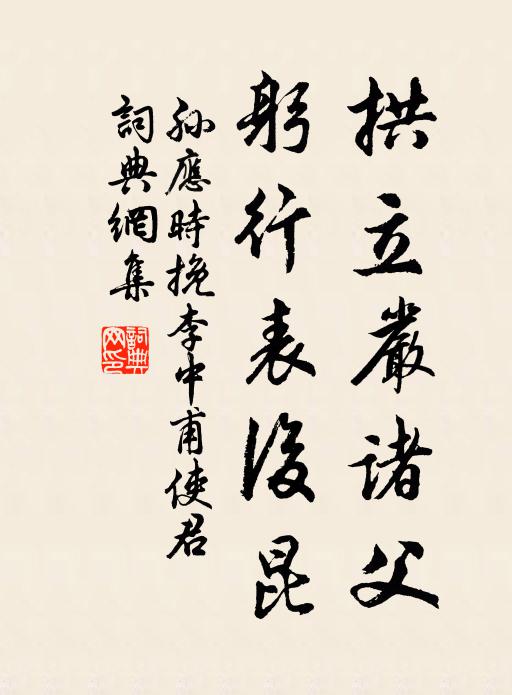 拱立嚴諸父
躬行表後昆
孙應時挽李中甫使君
詞典網集
詞典网印